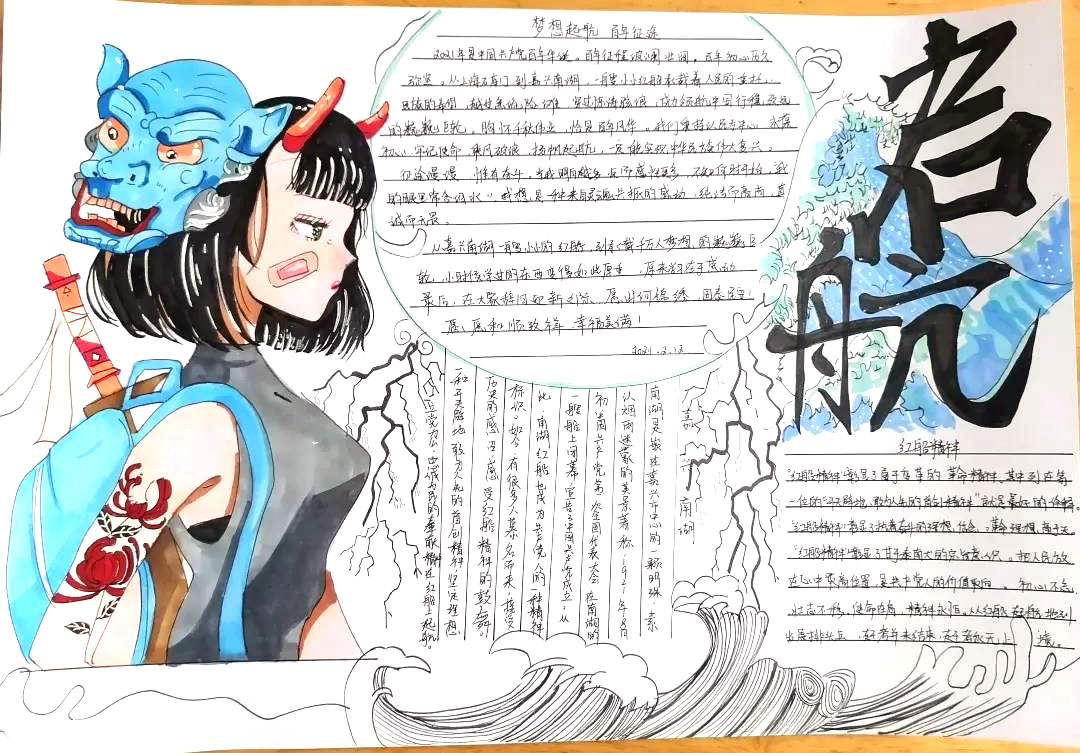 梦想起航 百年征途
2021年是中国共产党百年华诞。百年征程波澜壮阔,百年初心历久
弥坚。从上海石库门到嘉兴南湖,一艘小小红船承载着人民的重托、
民族的希望,越过急流险滩,穿过惊涛骇浪,成为领航中国行稳致远
的巍巍巨轮。胸怀千秋伟业,恰是百年风华。我们秉持以民为中心,永葆
初心,牢记使命,乘风破浪,扬帆起航,一定能实现中华民族伟大复兴。
征途漫漫,惟有奋斗。
的眼里常含泪水”我想,是一种来自灵魂共振的感动,纯洁而高尚,真
诚而无畏。
从嘉兴南湖一艘小小的红船,到承载千万人梦想的巍巍巨
轮,小时候学过的东西变得如此厚重,原来学习在于感动
最后,在大家辞旧迎新之际,愿山河锦绣,国泰民安!
愿和顺致祥,幸福美满!
2021.2.12
启航
嘉兴南湖
南湖是嵌在嘉兴市中心的一颗明珠,素
以烟雨迷蒙的美景著称,1921年8月
初,中国共产党第一次全国代表大会在南湖的
一艘船上闭幕,宣告了中国共产党成立。从
此,南湖红船也成为共产党人的一种精神
标识。如今,有很多人慕名而来,接受
历史的感召,感受红船精神的鼓舞。
和开天辟地、敢为人先的首创精神,坚定理想
百折不挠的奋斗精神,立党为公、忠诚为民的奉献精神在红船上起航。
红船精神
“红船精神”彰显了勇于变革的革命精神,其中列在第
一位的“开天辟地、敢为人先的首创精神”就是最好的诠释。
“红船精神”彰显了执着奋斗的理想信念,革命理想高于天。
“红船精神”彰显了甘于奉献的宗旨意识。把人民放
在心中最高位置,是共产党人的价值取向。初心不忘,
壮志不移,使命在肩,精神永恒,从红船起航地到